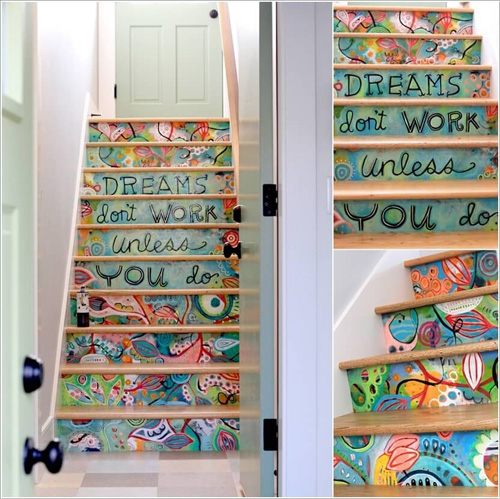 DREAMS
don't WORK
unless
YOU do
DREAMS
don't WORK
unless
YOU do